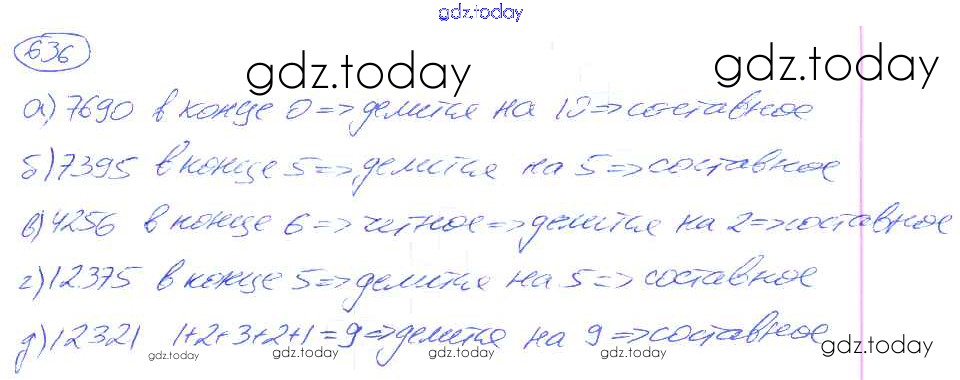 gdz.today
636
gdz.today gdz.today
а) 7690 в конце 0 => делится на 10 => составное
б) 7395 в конце 5 => делится на 5 => составное
в) 4256 в конце 6 => четное => делится на 2 => составное
г) 12375 в конце 5 => делится на 5 => составное
д) 12321 1+2+3+2+1=9 => делится на 9 => составное
gdz.today gdz.today gdz.today gdz.today gdz.today